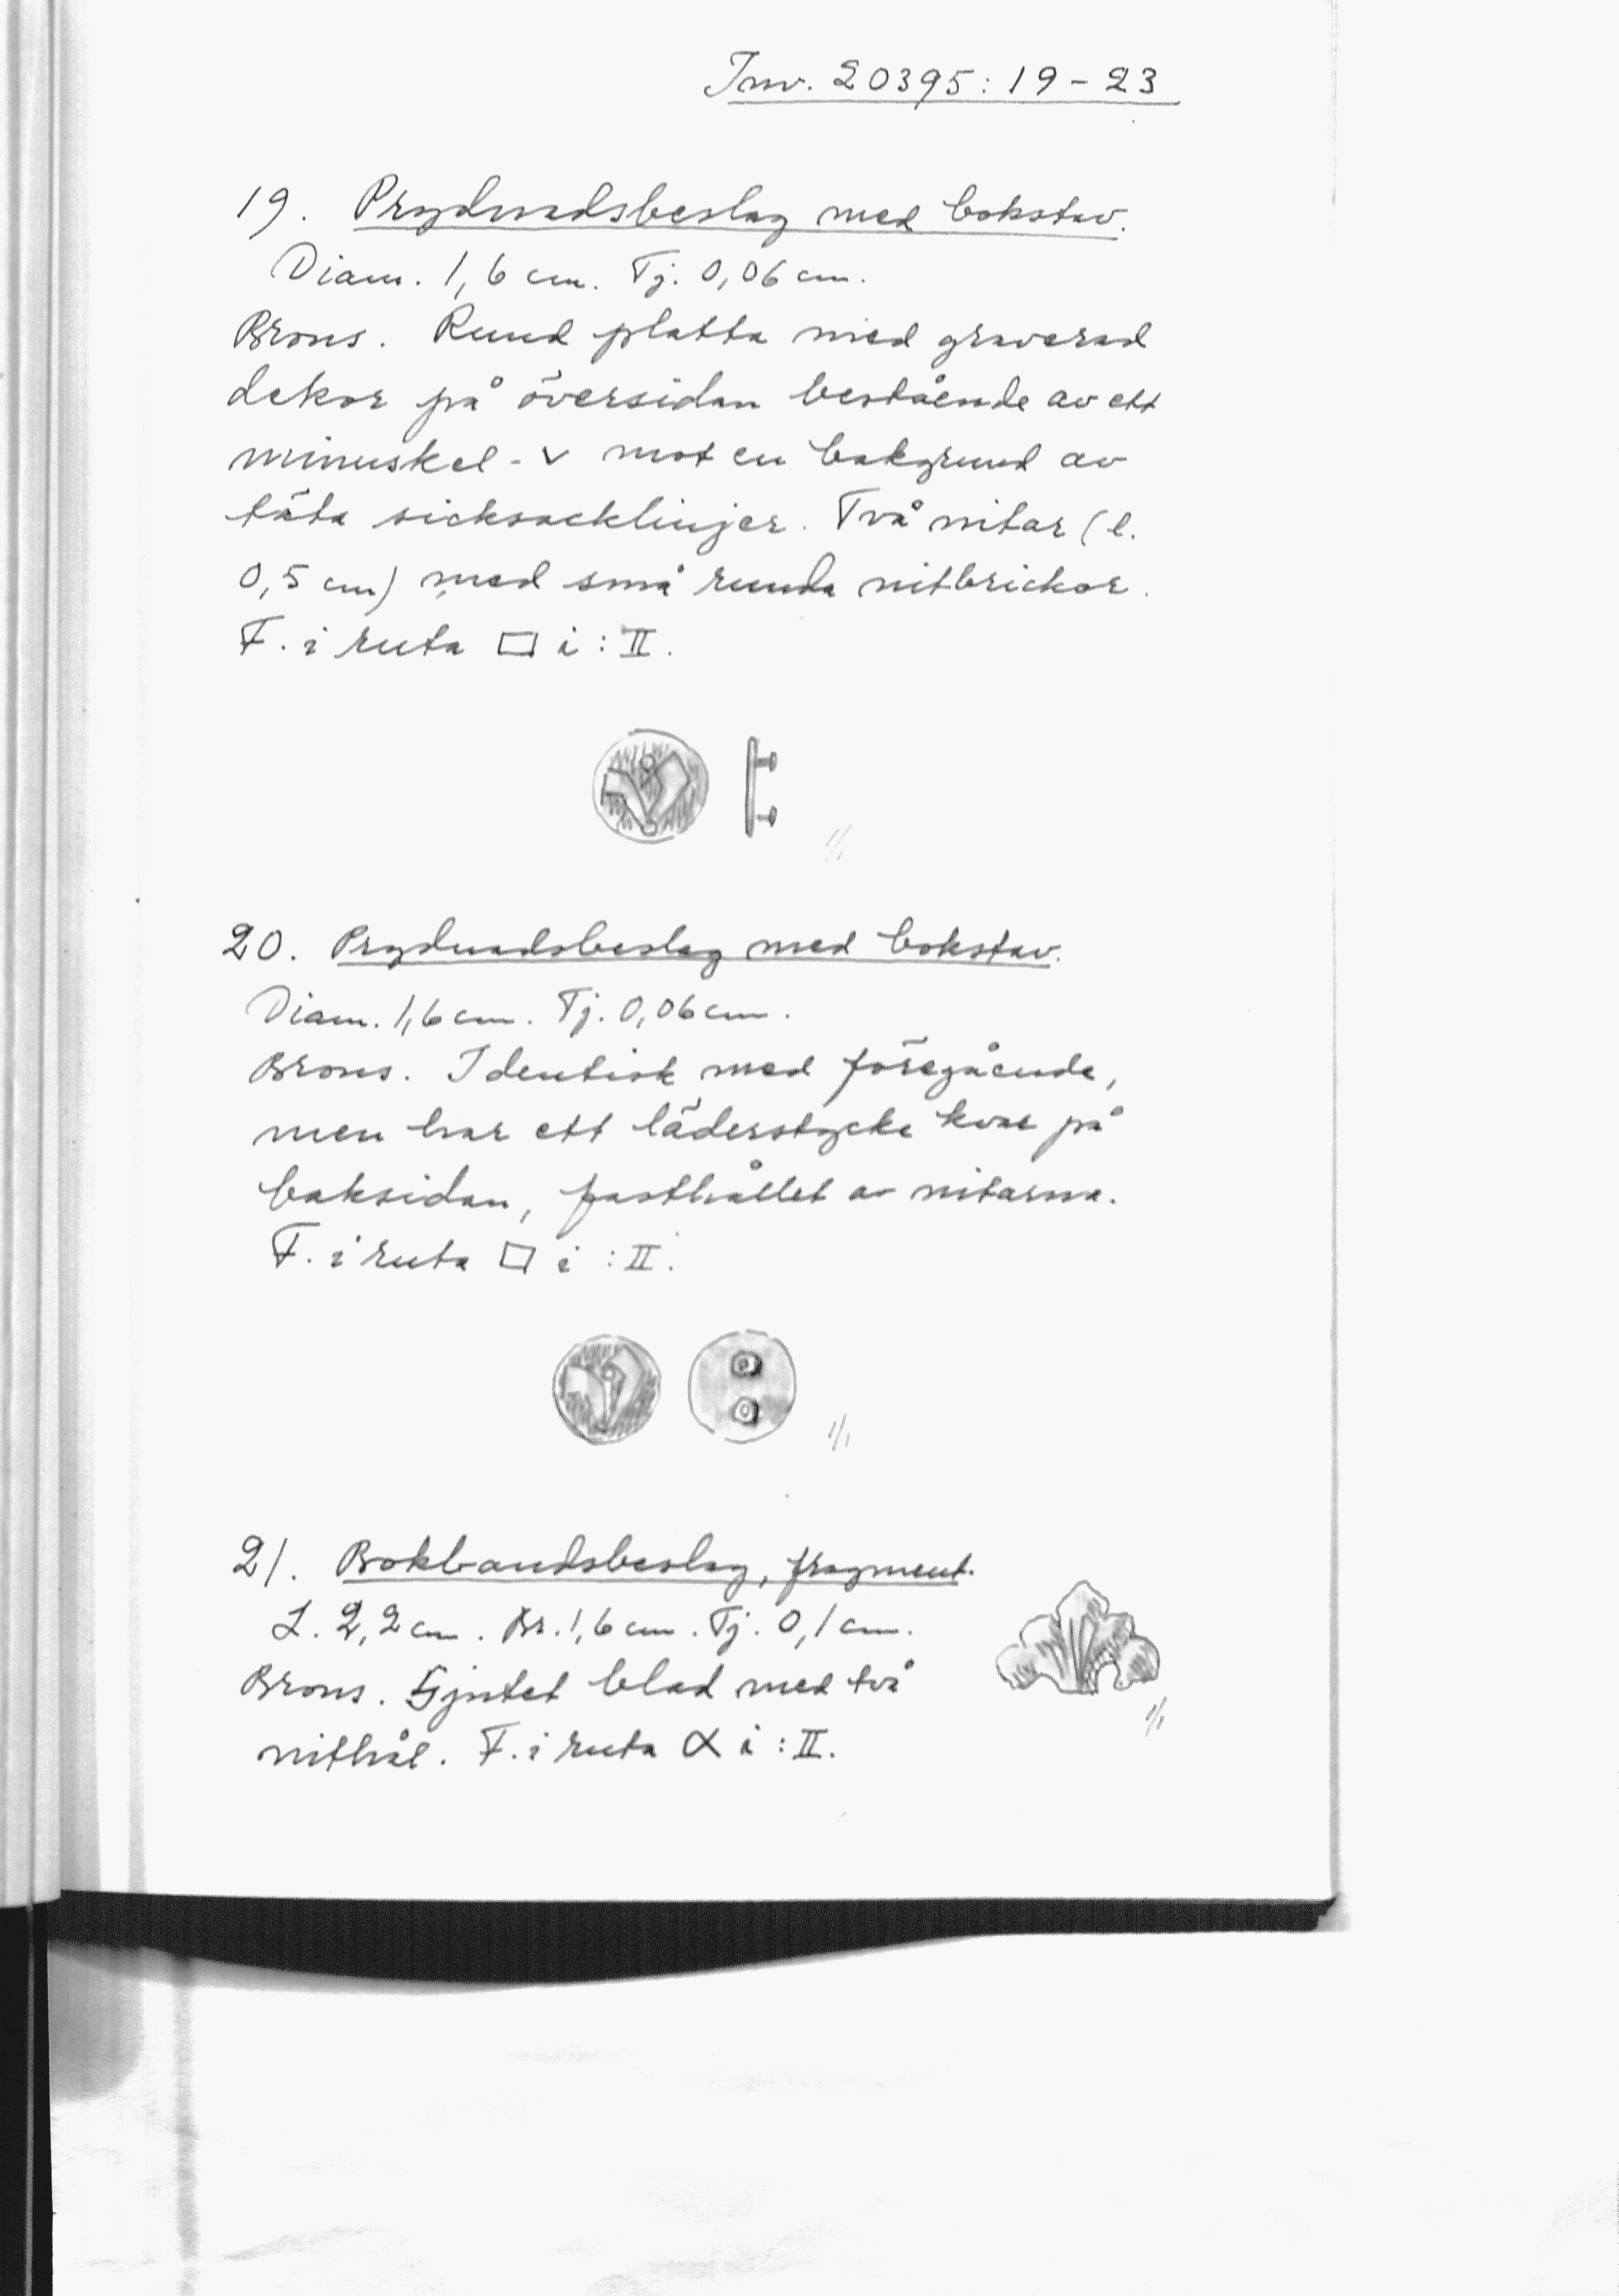 Inv. 20395:19-23
19. Prydnadsbeslag med bokstav.
Diam. 1,6 cm. Tj. 0,06 cm.
Brons. Rund platta med graverad
dekor på översidan bestående av ett
minuskel-v mot en bakgrund av
täta sicksacklinjer. Två nitar (l.
0,5 cm) med små runda nitbrickor.
F. i ruta □ i : II.
1/1
20. Prydnadsbeslag med bokstav.
Diam. 1,6 cm. Tj. 0,06 cm.
Brons. Identisk med föregående,
men har ett läderstycke kvar på
baksidan, fasthållet av nitarna.
F. i ruta □ i : II.
1/1
21. Bokbandsbeslag, fragment.
L. 2,2 cm. Br. 1,6 cm. Tj. 0,1 cm.
Brons. Gjutet blad med två
nithål. F. i ruta α i : II.
1/1